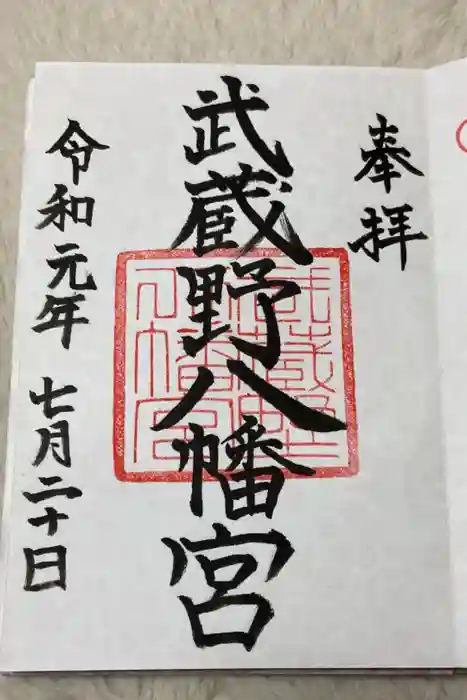 奉拝
武蔵野八幡宮
令和元年七月二十日
武蔵野
八幡宮